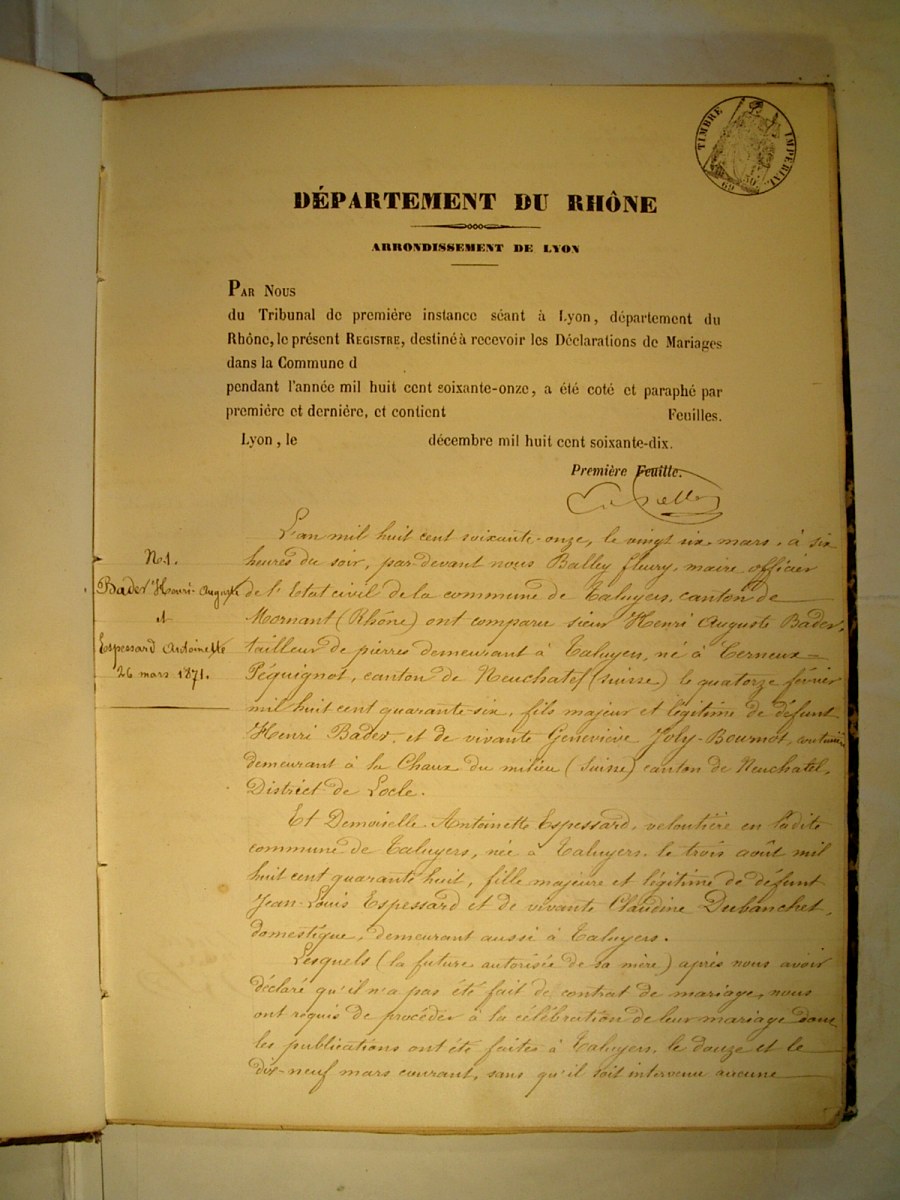 TIMBRE IMPERIAL
50
69
DÉPARTEMENT DU RHÔNE
ARRONDISSEMENT DE LYON
PAR NOUS
du Tribunal de première instance séant à Lyon, département du
Rhône, le présent REGISTRE, destiné à recevoir les Déclarations de Mariages
dans la Commune d
pendant l'année mil huit cent soixante-onze, a été coté et paraphé par
première et dernière, et contient Feuilles.
Lyon, le décembre mil huit cent soixante-dix.
Première Feuille.
No 1.
Bader Henri-Auguste
et
Espessard Antoinette
26 mars 1871.
L'an mil huit cent soixante-onze, le vingt six mars, à six
heures du soir, par-devant nous Balley fleury, maire officier
de l'Etat civil de la commune de Taluyers, canton de
Mornant (Rhône) ont comparu sieur Henri Auguste Bader,
tailleur de pierres demeurant à Taluyers, né à Cerneux-
Péquignot, canton de Neuchatel (suisse) le quatorze février
mil huit cent quarante-six, fils majeur et légitime de défunt
Henri Bader, et de vivante Geneviève Joly-Bournot,
demeurant à la Chaux du milieu (Suisse) canton de Neuchatel,
District de Locle.
Et Demoiselle Antoinette Espessard, veloutière en ladite
commune de Taluyers, née à Taluyers, le trois août mil
huit cent quarante huit, fille majeure et légitime de défunt
Jean-Louis Espessard et de vivante Claudine Dubanchet,
domestique, demeurant aussi à Taluyers.
Lesquels (la future autorisée de sa mère) après nous avoir
déclaré qu'il n'a pas été fait de contrat de mariage, nous
ont réquis de procéder à la célébration de leur mariage dont
les publications ont été faites à Taluyers, le douze et le
dix-neuf mars courant, sans qu'il soit intervenu aucune